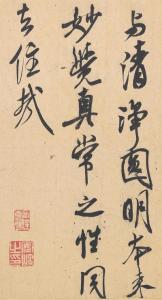 与清淨圓明本来
妙覺真常之性同
去住哉